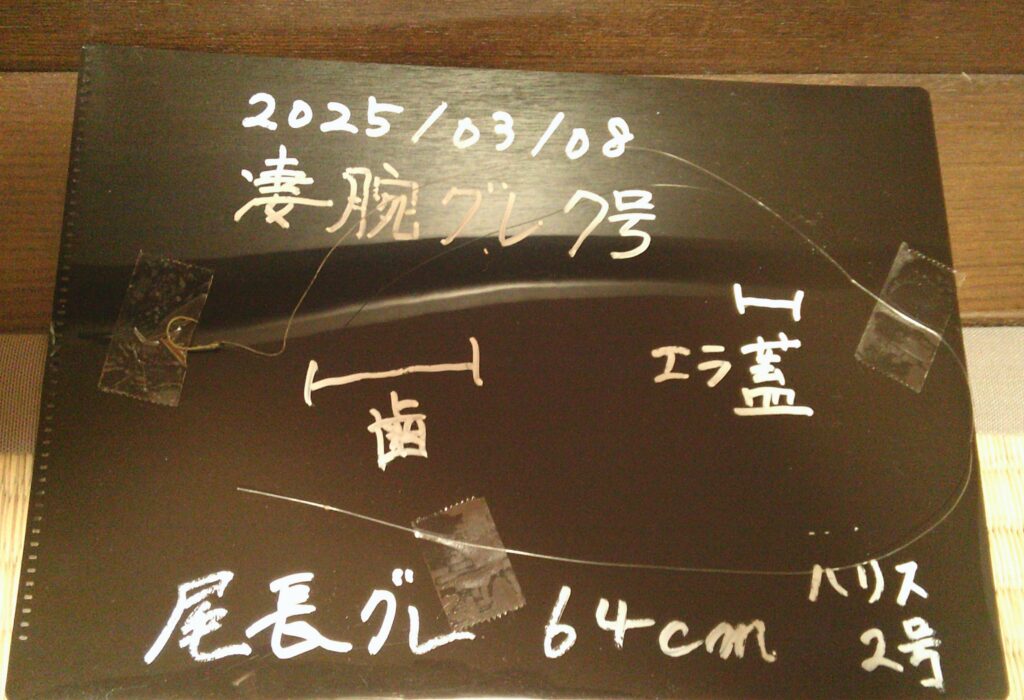 2025/03/08
凄腕グレ 7号
エラ蓋
歯
尾長グレ 64cm
ハリス
2号